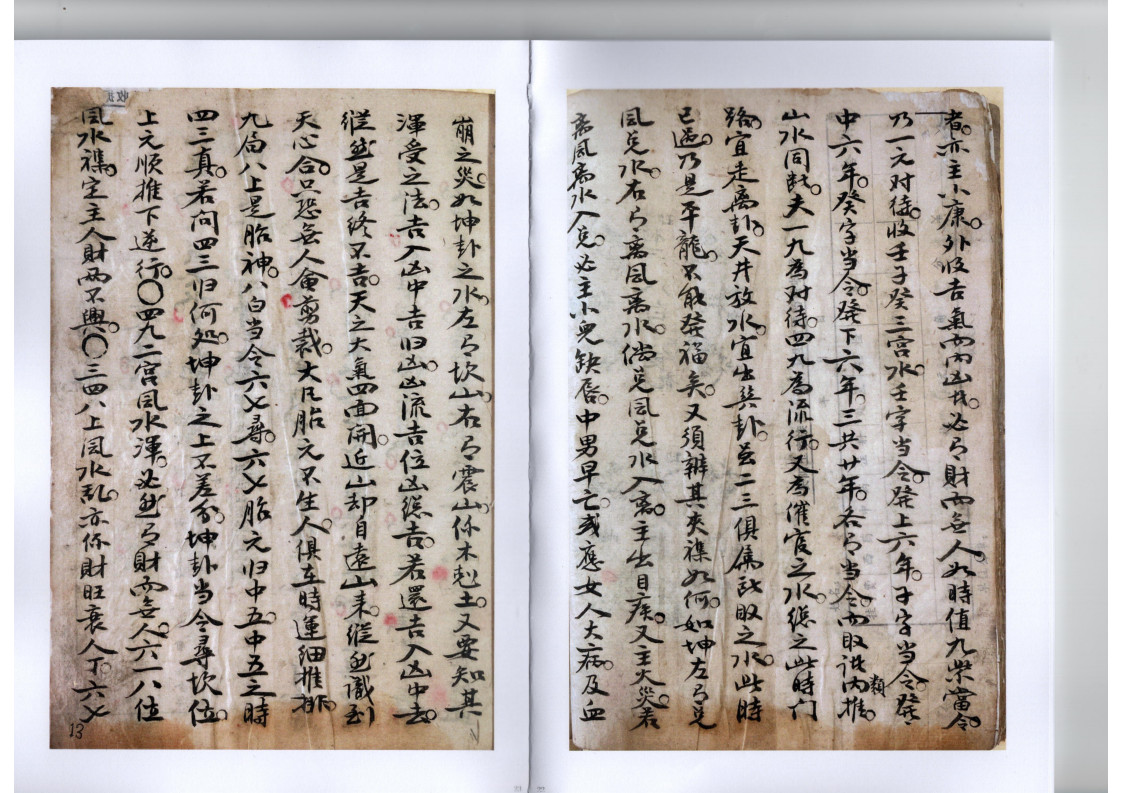 者。亦主小康。外收吉氣而內凶者。必有財而無人。如時值九紫當令。
乃一元对待。收壬子癸三宫水。壬字当令発上六年。子字当令。発
中六年。癸字当令。発下六年。三共廿年。各有当令。而取諸內類推。
山水同斷。夫一九為对待。四九為流行。又為催官之水。總之此時门
路。宜走离卦。天井放水。宜出巽卦。至二三俱属既敗之水。此時
已過。乃是平龍。不能発福矣。又須辨其夾襍如何。如坤左有兌
風兌水。右有离風离水。倘兌風兌水入离。主出目疾。又主火災。若
离風离水入兌。必主小兒缺唇。中男早亡。或應女人大病。及血
崩之災。如坤卦之水。左有坎山。右有震山。係木剋土。又要知其
渾受之法。吉入凶中吉旧凶。凶流吉位凶總吉。若還吉入凶中去。
縱然是吉終不吉。天之大氣四面開。近山却自遠山来。縱然識到
天心合。只恐無人會剪裁。大凡胎元不生人。俱在時運細推排。
九局八上是胎神。八白当令六乂尋。六乂胎元归中五。中五三時
四三真。若问四三归何处。坤卦之上不差分。坤卦当令尋坎位。
上元順推下逆行。〇四九二宫風水渾。必然有財而無人。六一八位
風水襍。定主人財兩不興。〇三四八上風水乱。亦係財旺衰人丁。六乂
13